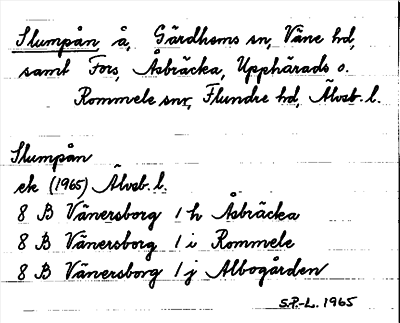 Slumpån å, Gärdhems sn, Väne hd,
samt Fors, Åsbräcka, Upphärads o.
Rommele snr, Flundre hd, Älvsb. l.
Slumpån
ek (1965) Älvsb. l.
8 B Vänersborg 1 h Åsbräcka
8 B Vänersborg 1 i Rommele
8 B Vänersborg 1 j Albogården
S.P.-L. 1965